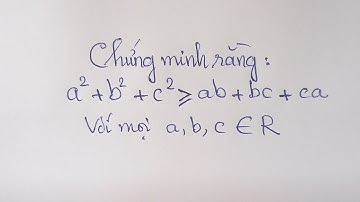 Chứng minh rằng:
a² + b² + c² ≥ ab + bc + ca
Với mọi a, b, c ∈ R